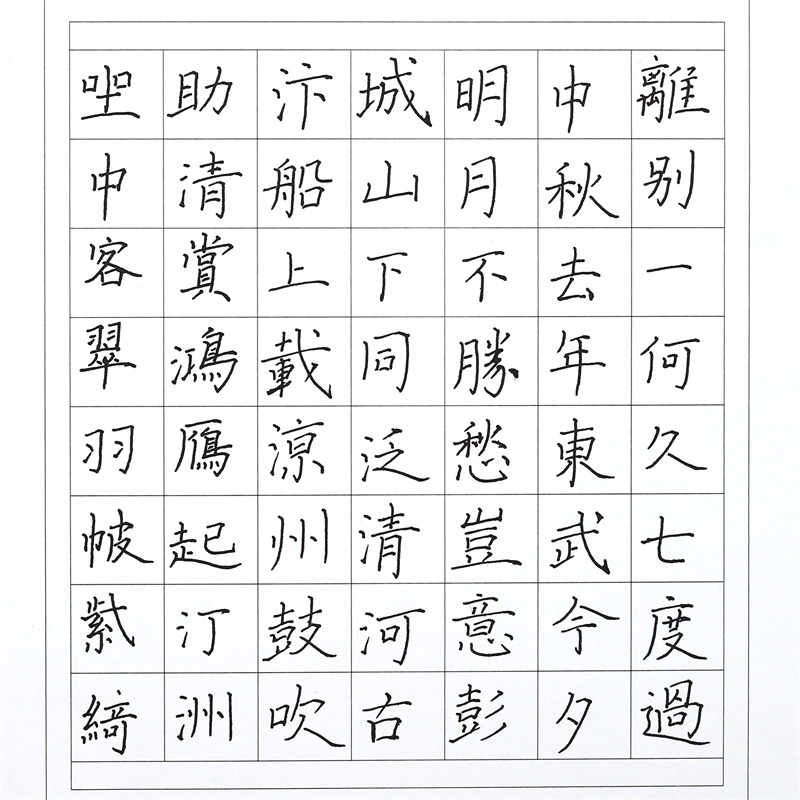 離別一何久七度過
中秋去年東武今夕
明月不勝愁豈意彭
城山下同泛清河古
汴船上載涼州鼓吹
助清賞鴻鴈起汀洲
坐中客翠羽帔紫綺